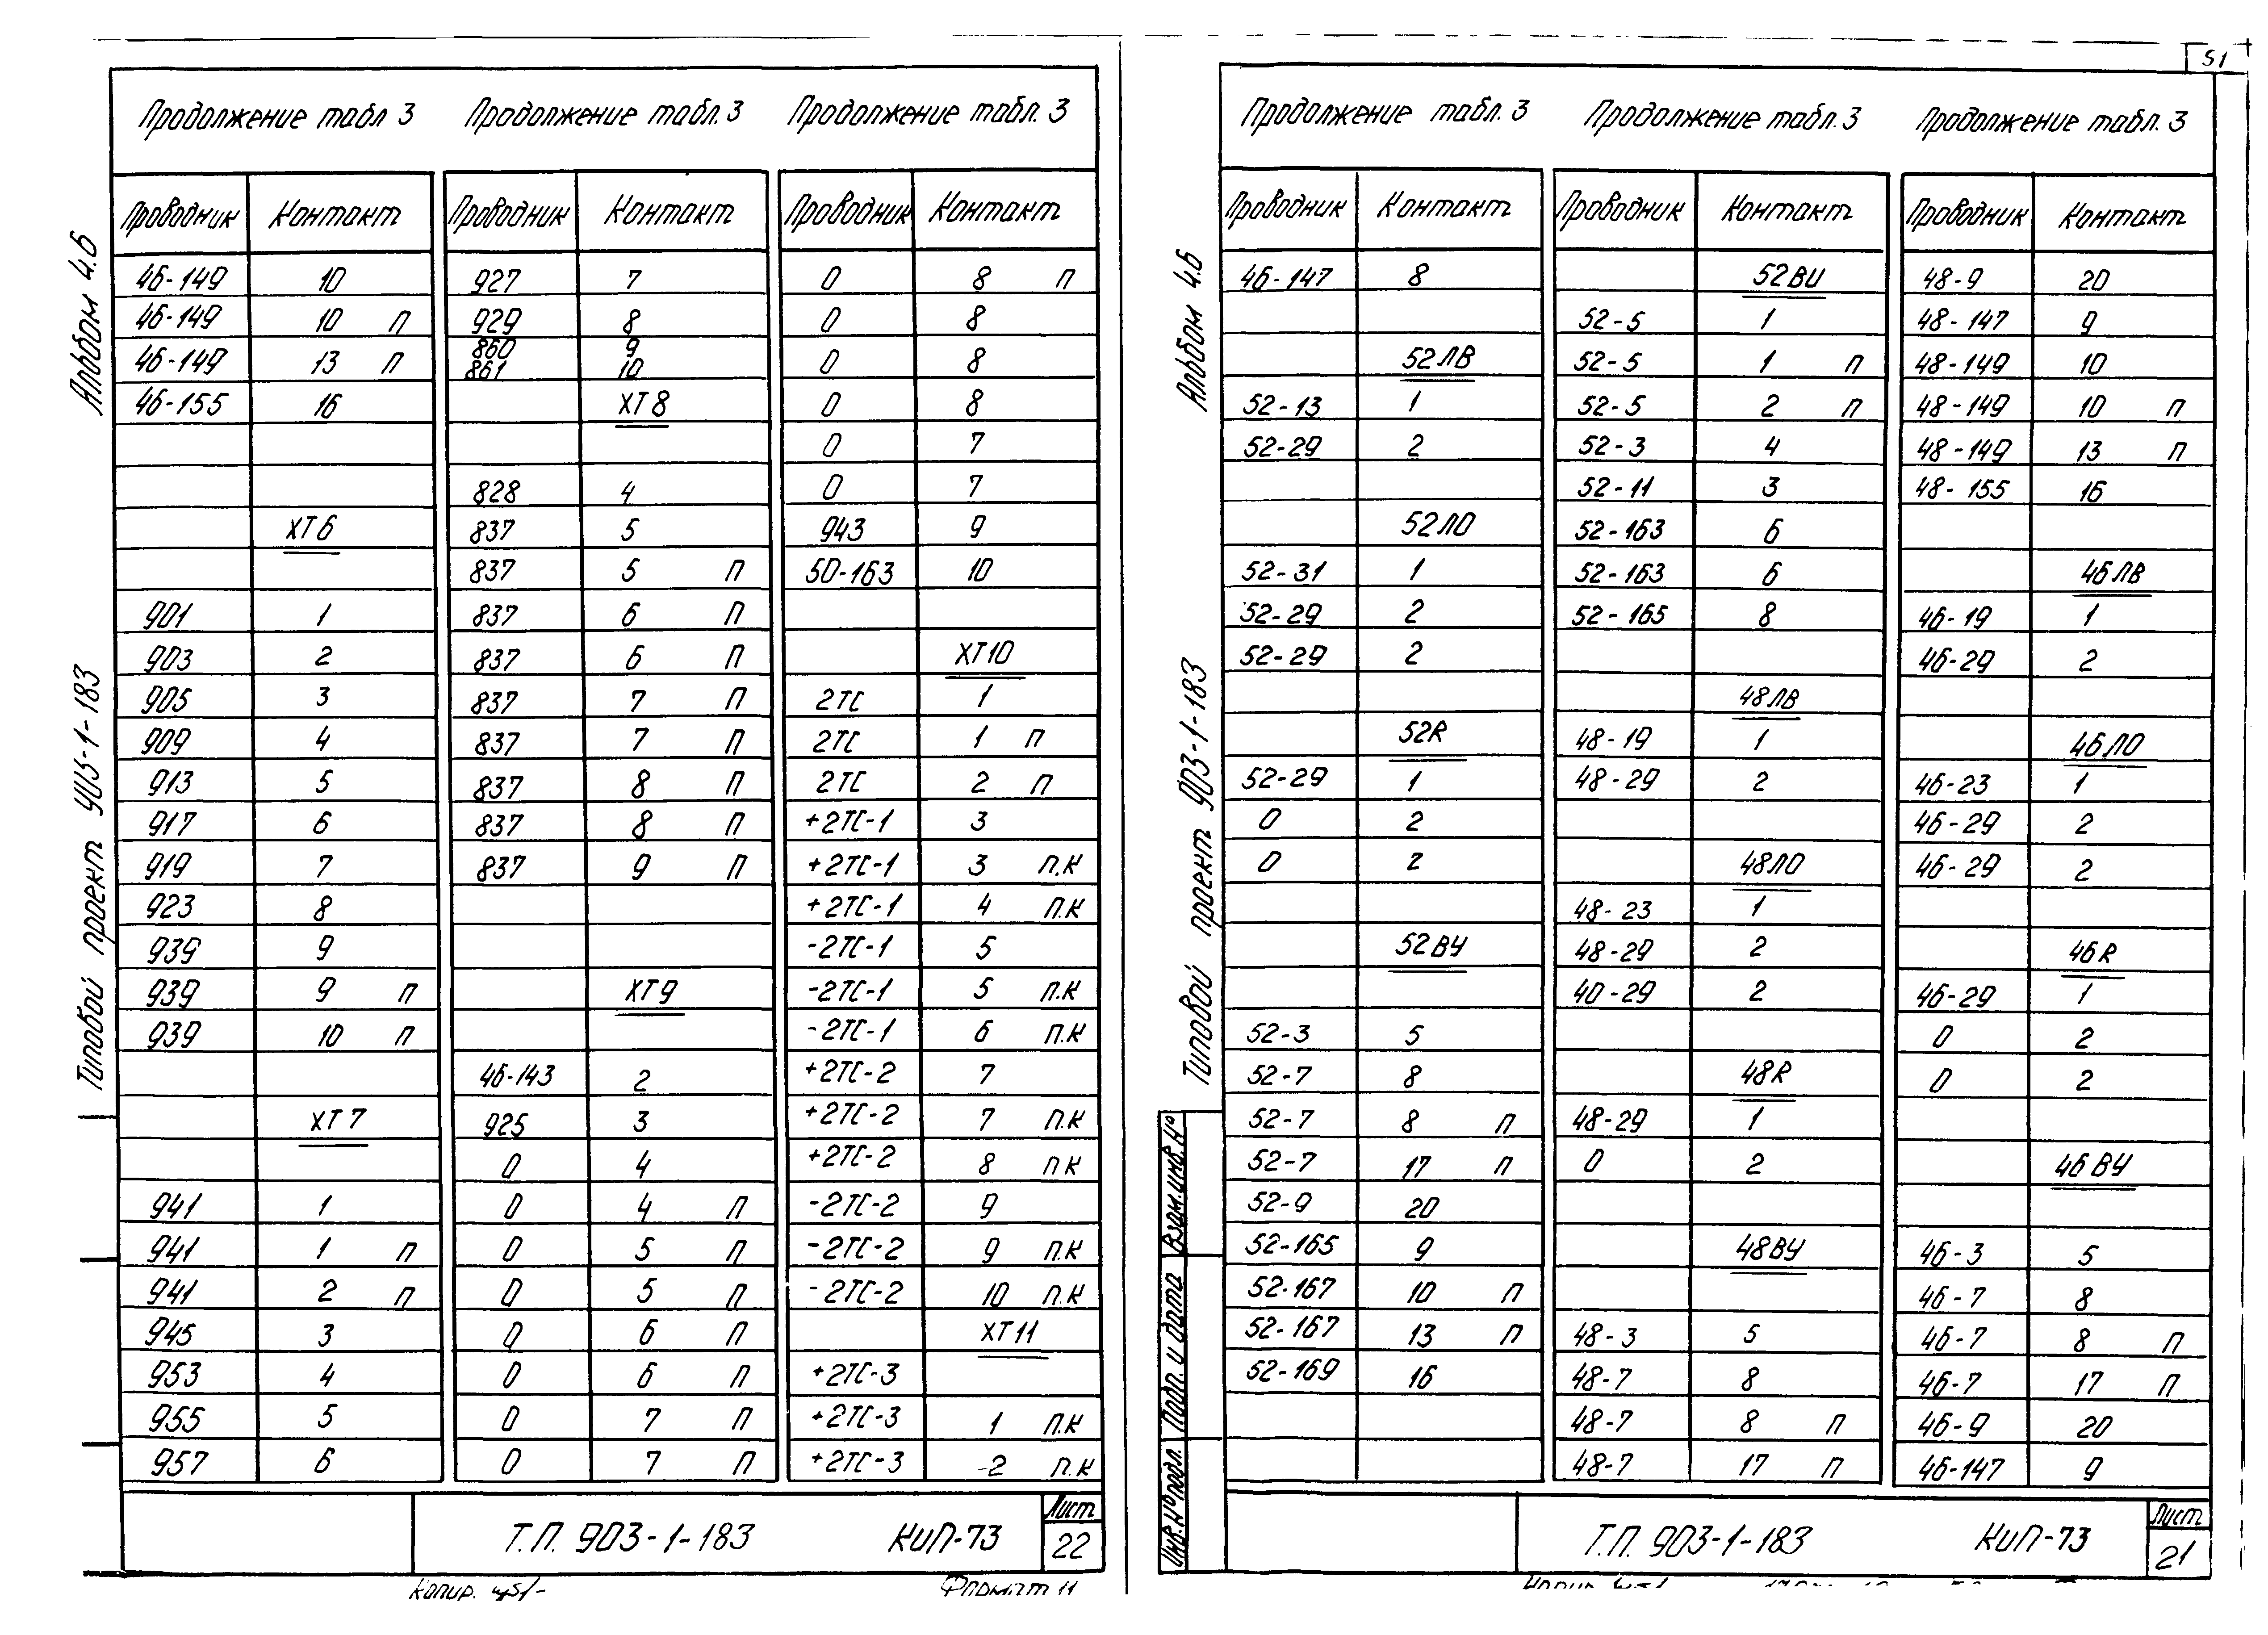 51
Альбом 4.6
Типовой проект 903-1-183
Продолжение табл 3
Проводник Контакт
46-149 10
46-149 10 П
46-149 13 П
46-155 16
ХТ6
901 1
903 2
905 3
909 4
913 5
917 6
919 7
923 8
939 9
939 9 П
939 10 П
ХТ7
941 1
941 1 П
941 2 П
945 3
953 4
955 5
957 6
Продолжение табл. 3
Проводник Контакт
927 7
929 8
860 9
861 10
ХТ8
828 4
837 5
837 5 П
837 6 П
837 6 П
837 7 П
837 7 П
837 8 П
837 8 П
837 9 П
ХТ9
46-143 2
925 3
0 4
0 4 П
0 5 П
0 5 П
0 6 П
0 6 П
0 7 П
0 7 П
Продолжение табл. 3
Проводник Контакт
0 8 П
0 8
0 8
0 8
0 7
0 7
943 9
50-163 10
ХТ10
2ТС 1
2ТС 1 П
2ТС 2 П
+2ТС-1 3
+2ТС-1 3 П.К
+2ТС-1 4 П.К
-2ТС-1 5
-2ТС-1 5 П.К
-2ТС-1 6 П.К
+2ТС-2 7
+2ТС-2 7 П.К
+2ТС-2 8 П К
-2ТС-2 9
-2ТС-2 9 П.К
-2ТС-2 10 П.К
ХТ11
+2ТС-3
+2ТС-3 1 П.К
+2ТС-3 -2 П.К
Т.П. 903-1-183 КиП-73
Лист
22
Копир.
Формат 11
Альбом 4.6
Типовой проект 903-1-183
Взам.инв.№
Подп. и дата
Инв.№ подл.
Продолжение табл. 3
Проводник Контакт
46-147 8
52ЛВ
52-13 1
52-29 2
52ЛО
52-31 1
52-29 2
52-29 2
52R
52-29 1
0 2
0 2
52ВУ
52-3 5
52-7 8
52-7 8 П
52-7 17 П
52-9 20
52-165 9
52-167 10 П
52-167 13 П
52-169 16
Продолжение табл. 3
Проводник Контакт
52ВU
52-5 1
52-5 1 П
52-5 2 П
52-3 4
52-11 3
52-163 6
52-163 6
52-165 8
48ЛВ
48-19 1
48-29 2
48ЛО
48-23 1
48-29 2
40-29 2
48R
48-29 1
0 2
48ВУ
48-3 5
48-7 8
48-7 8 П
48-7 17 П
Продолжение табл. 3
Проводник Контакт
48-9 20
48-147 9
48-149 10
48-149 10 П
48-149 13 П
48-155 16
46ЛВ
46-19 1
46-29 2
46ЛО
46-23 1
46-29 2
46-29 2
46R
46-29 1
0 2
0 2
46ВУ
46-3 5
46-7 8
46-7 8 П
46-7 17 П
46-9 20
46-147 9
Т.П. 903-1-183 КиП-73
Лист
21